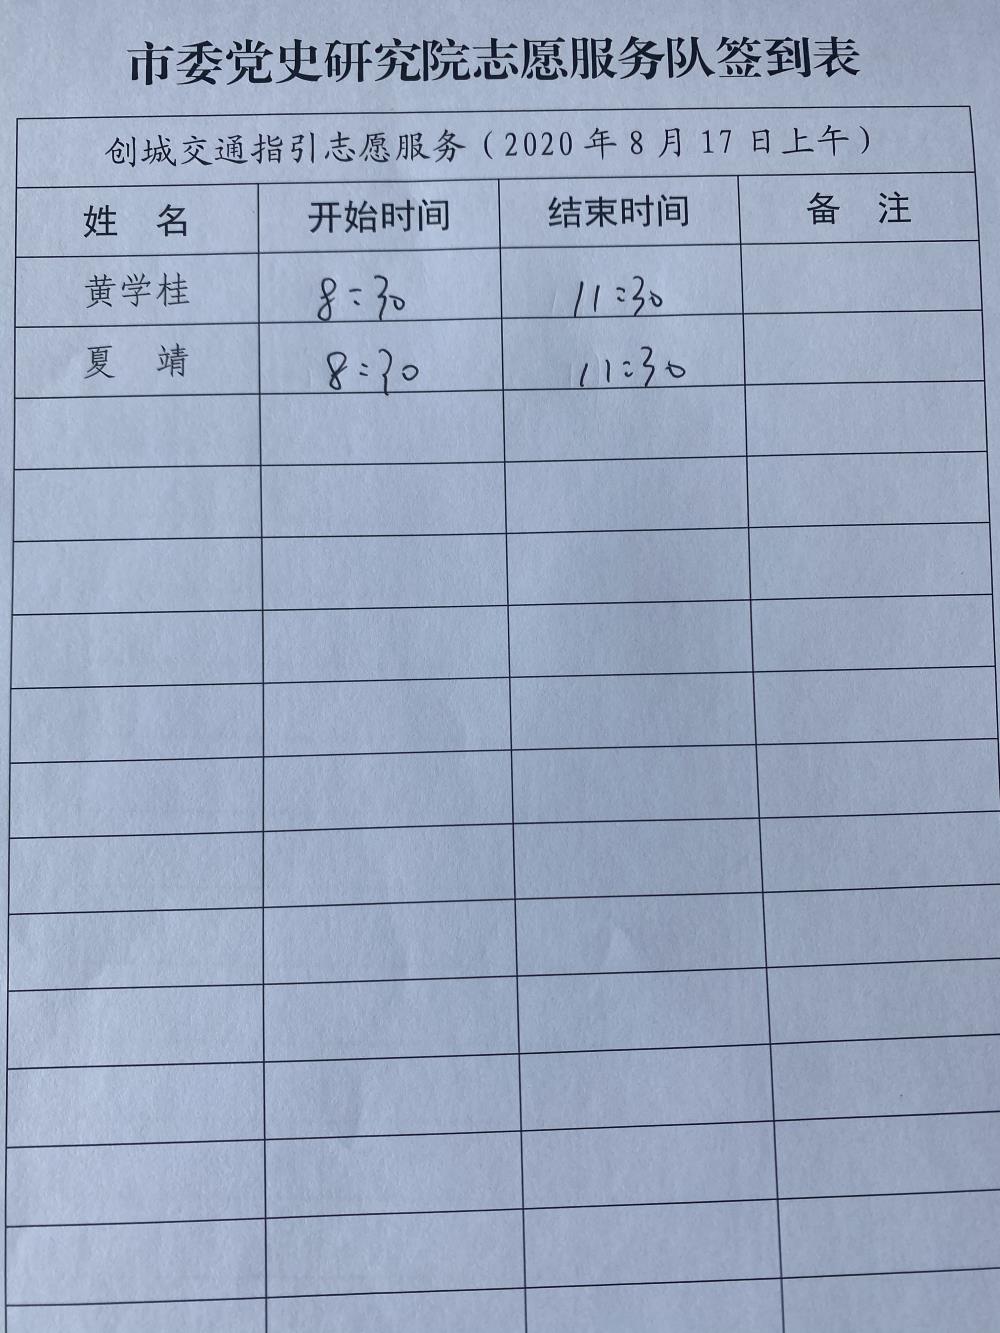 市委党史研究院志愿服务队签到表
创城交通指引志愿服务（2020年8月17日上午）
姓 名 开始时间 结束时间 备 注
黄学桂 8:30 11:30
夏 靖 8:30 11:30